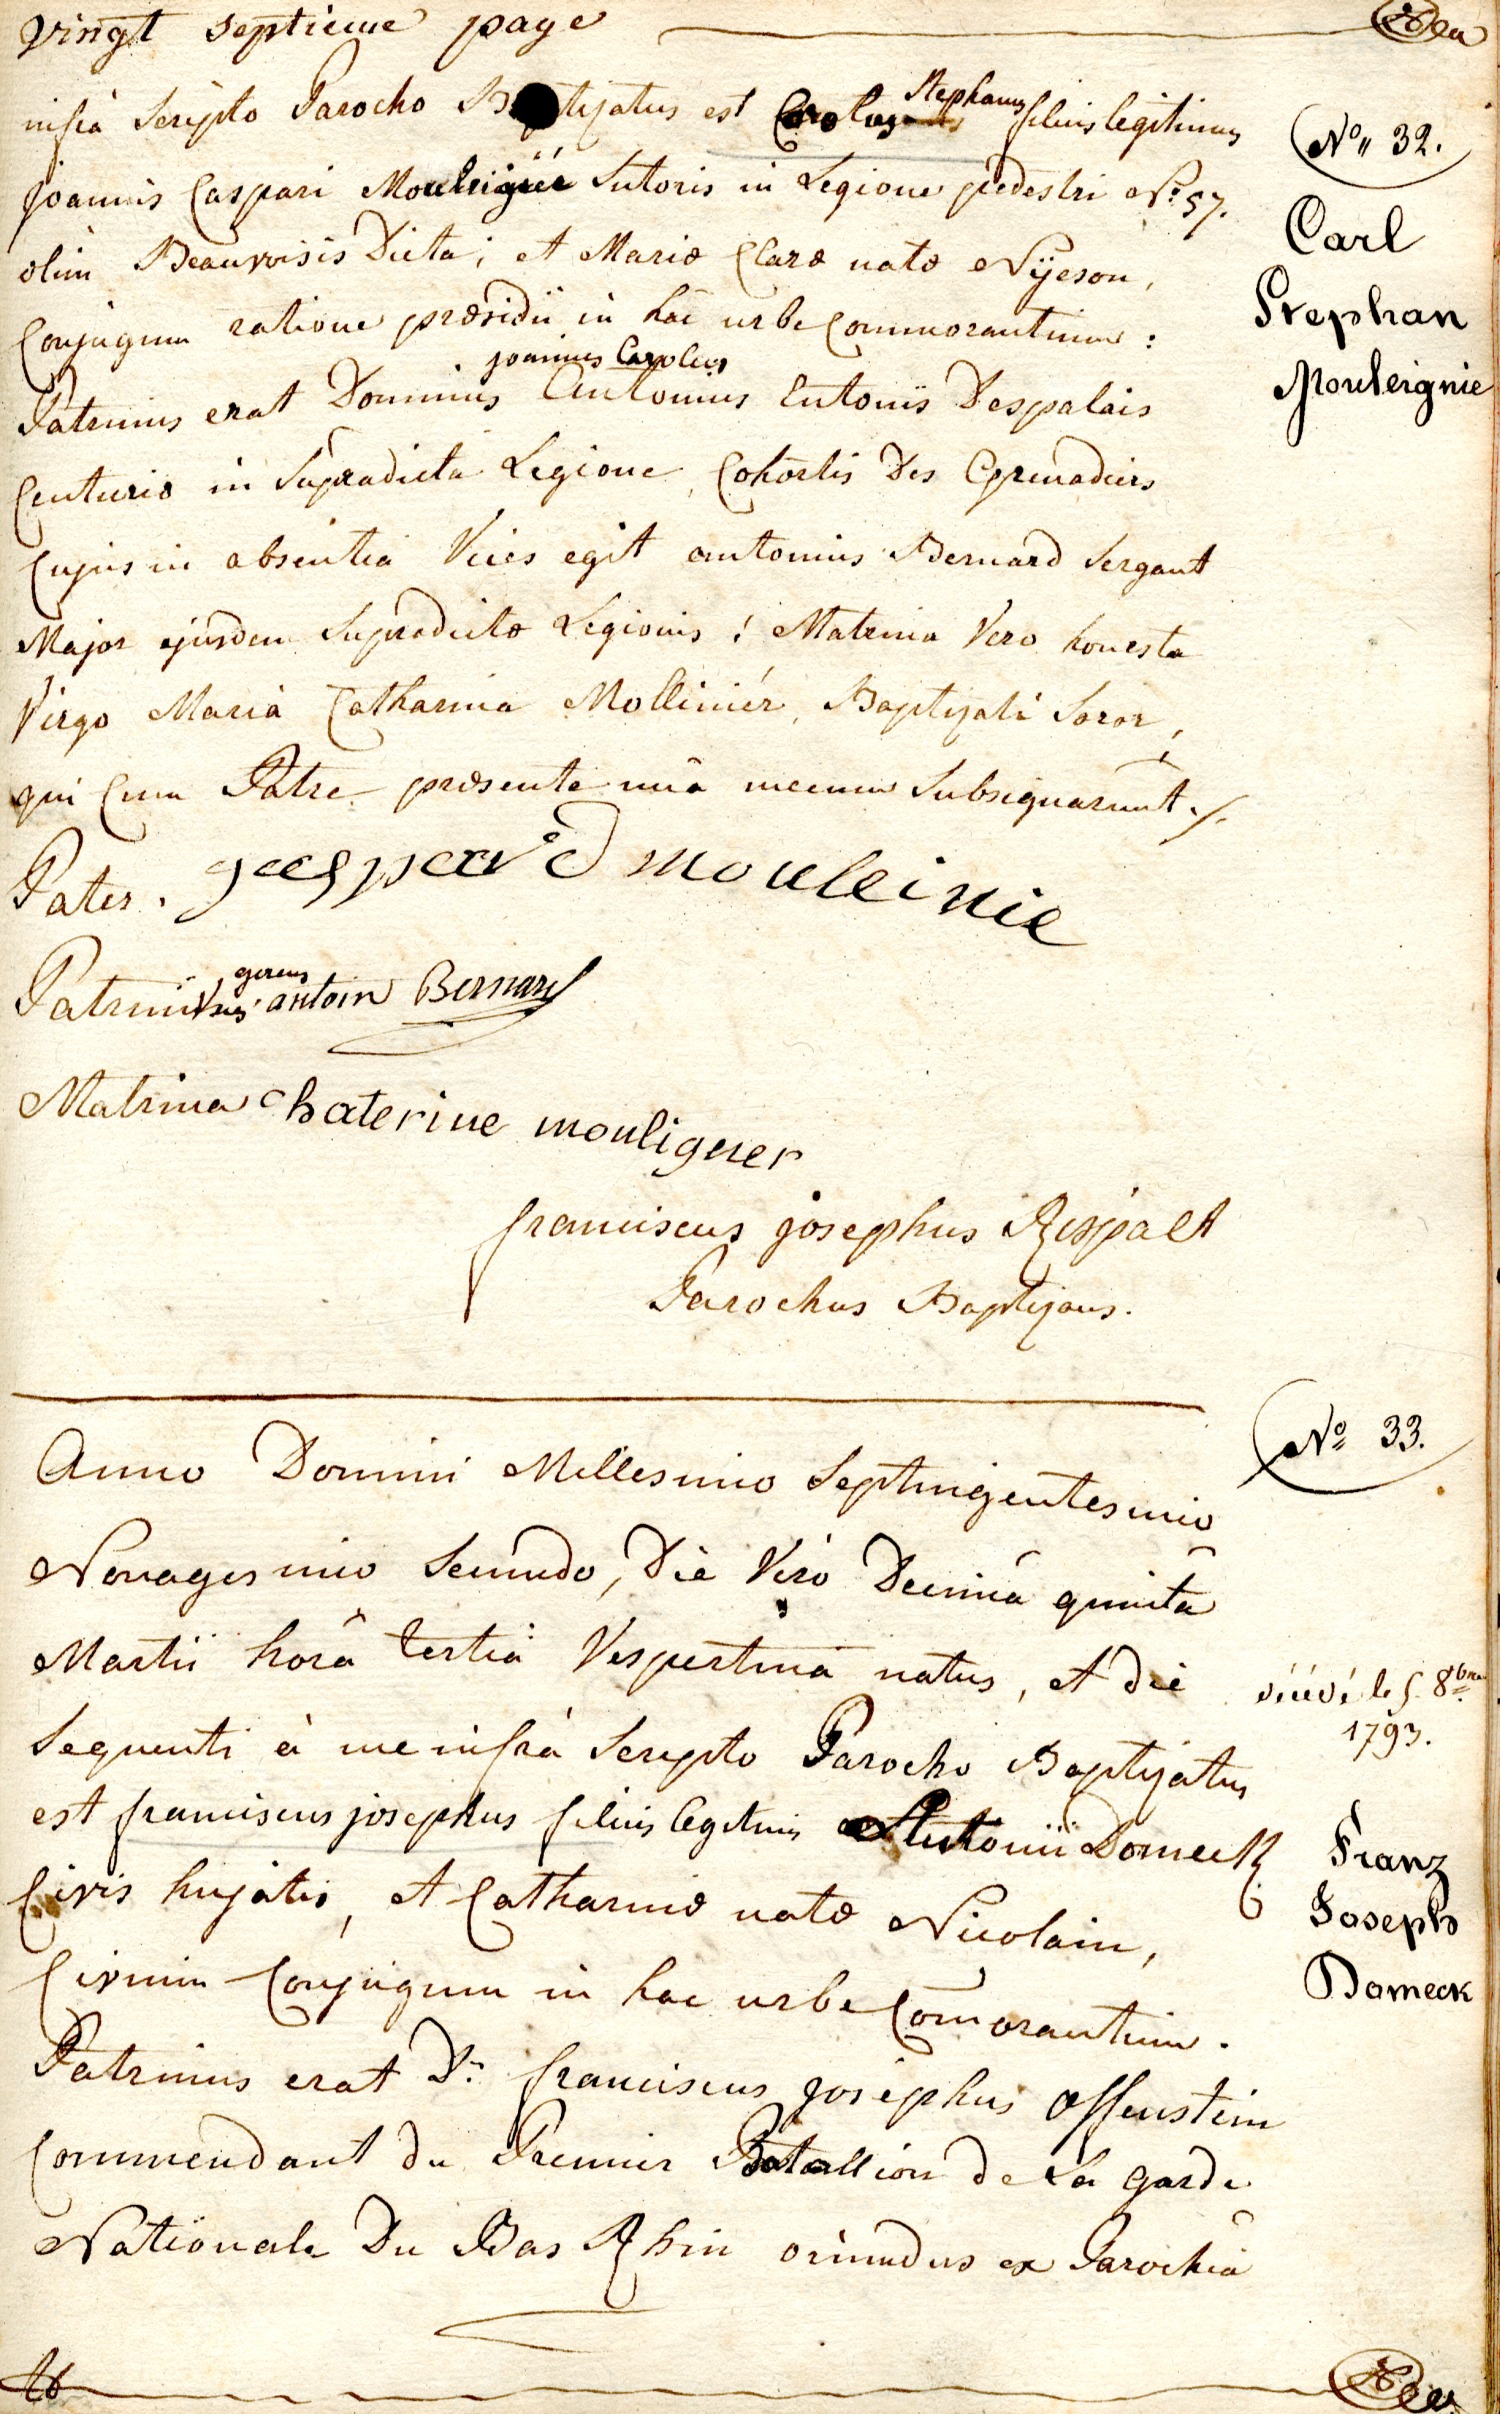 vingt septieme page
infrà Scripto Parocho Baptizatus est Carolus Stephanus filius legitimus
joannis Caspari Mouleigniér Sutoris in Legione pedestri No. 57.
olim Beauvoisis Dicta; et Mariæ Claræ natæ Nijeson,
Conjugum ratione præsidii in hâc urbe Commorantium:
joannes Carolus
Patrinus erat Dominus Antonius Entonis Despalais
Centurio in Supradicta Legione, Cohortis Des Grenadiers
Cujus in absentia Vices egit antonius Bernard Sergant
Major ejusdem Supradictæ Legionis; Matrina Vero honesta
Virgo Maria Catharina Molliniér, Baptizati Soror,
qui Cum Patre præsente unà mecum Subsignarunt ./.
Pater. gaspard mouleinie
Patrini Vices gerens antoin Bernard
Matrina Chaterine mouligner
franciscus josephus Rispalt
Parochus Baptizans.
No 32.
Carl
Stephan
Mouleignie
Anno Domini Millesimo Septingentesimo
Nonagesimo Secundo, Die Verò Decimâ quintâ
Martii horâ tertiâ Vespertinâ natus, et die
Sequenti à me infrà Scripto Parocho Baptizatus
est franciscus josephus filius legitimus Antonii Domeck
Civis hujatis, et Catharinæ natæ Nicolain,
Civium Conjugum in hac urbe Com̄orantium.
Patrinus erat Ds. franciscus josephus Offenstein
Commendant du Premier Batallion de La garde
Nationale Du Bas Rhin oriundus ex Parochiâ
No 33.
le 5. 8bre
1793.
Franz
Joseph
Domeck